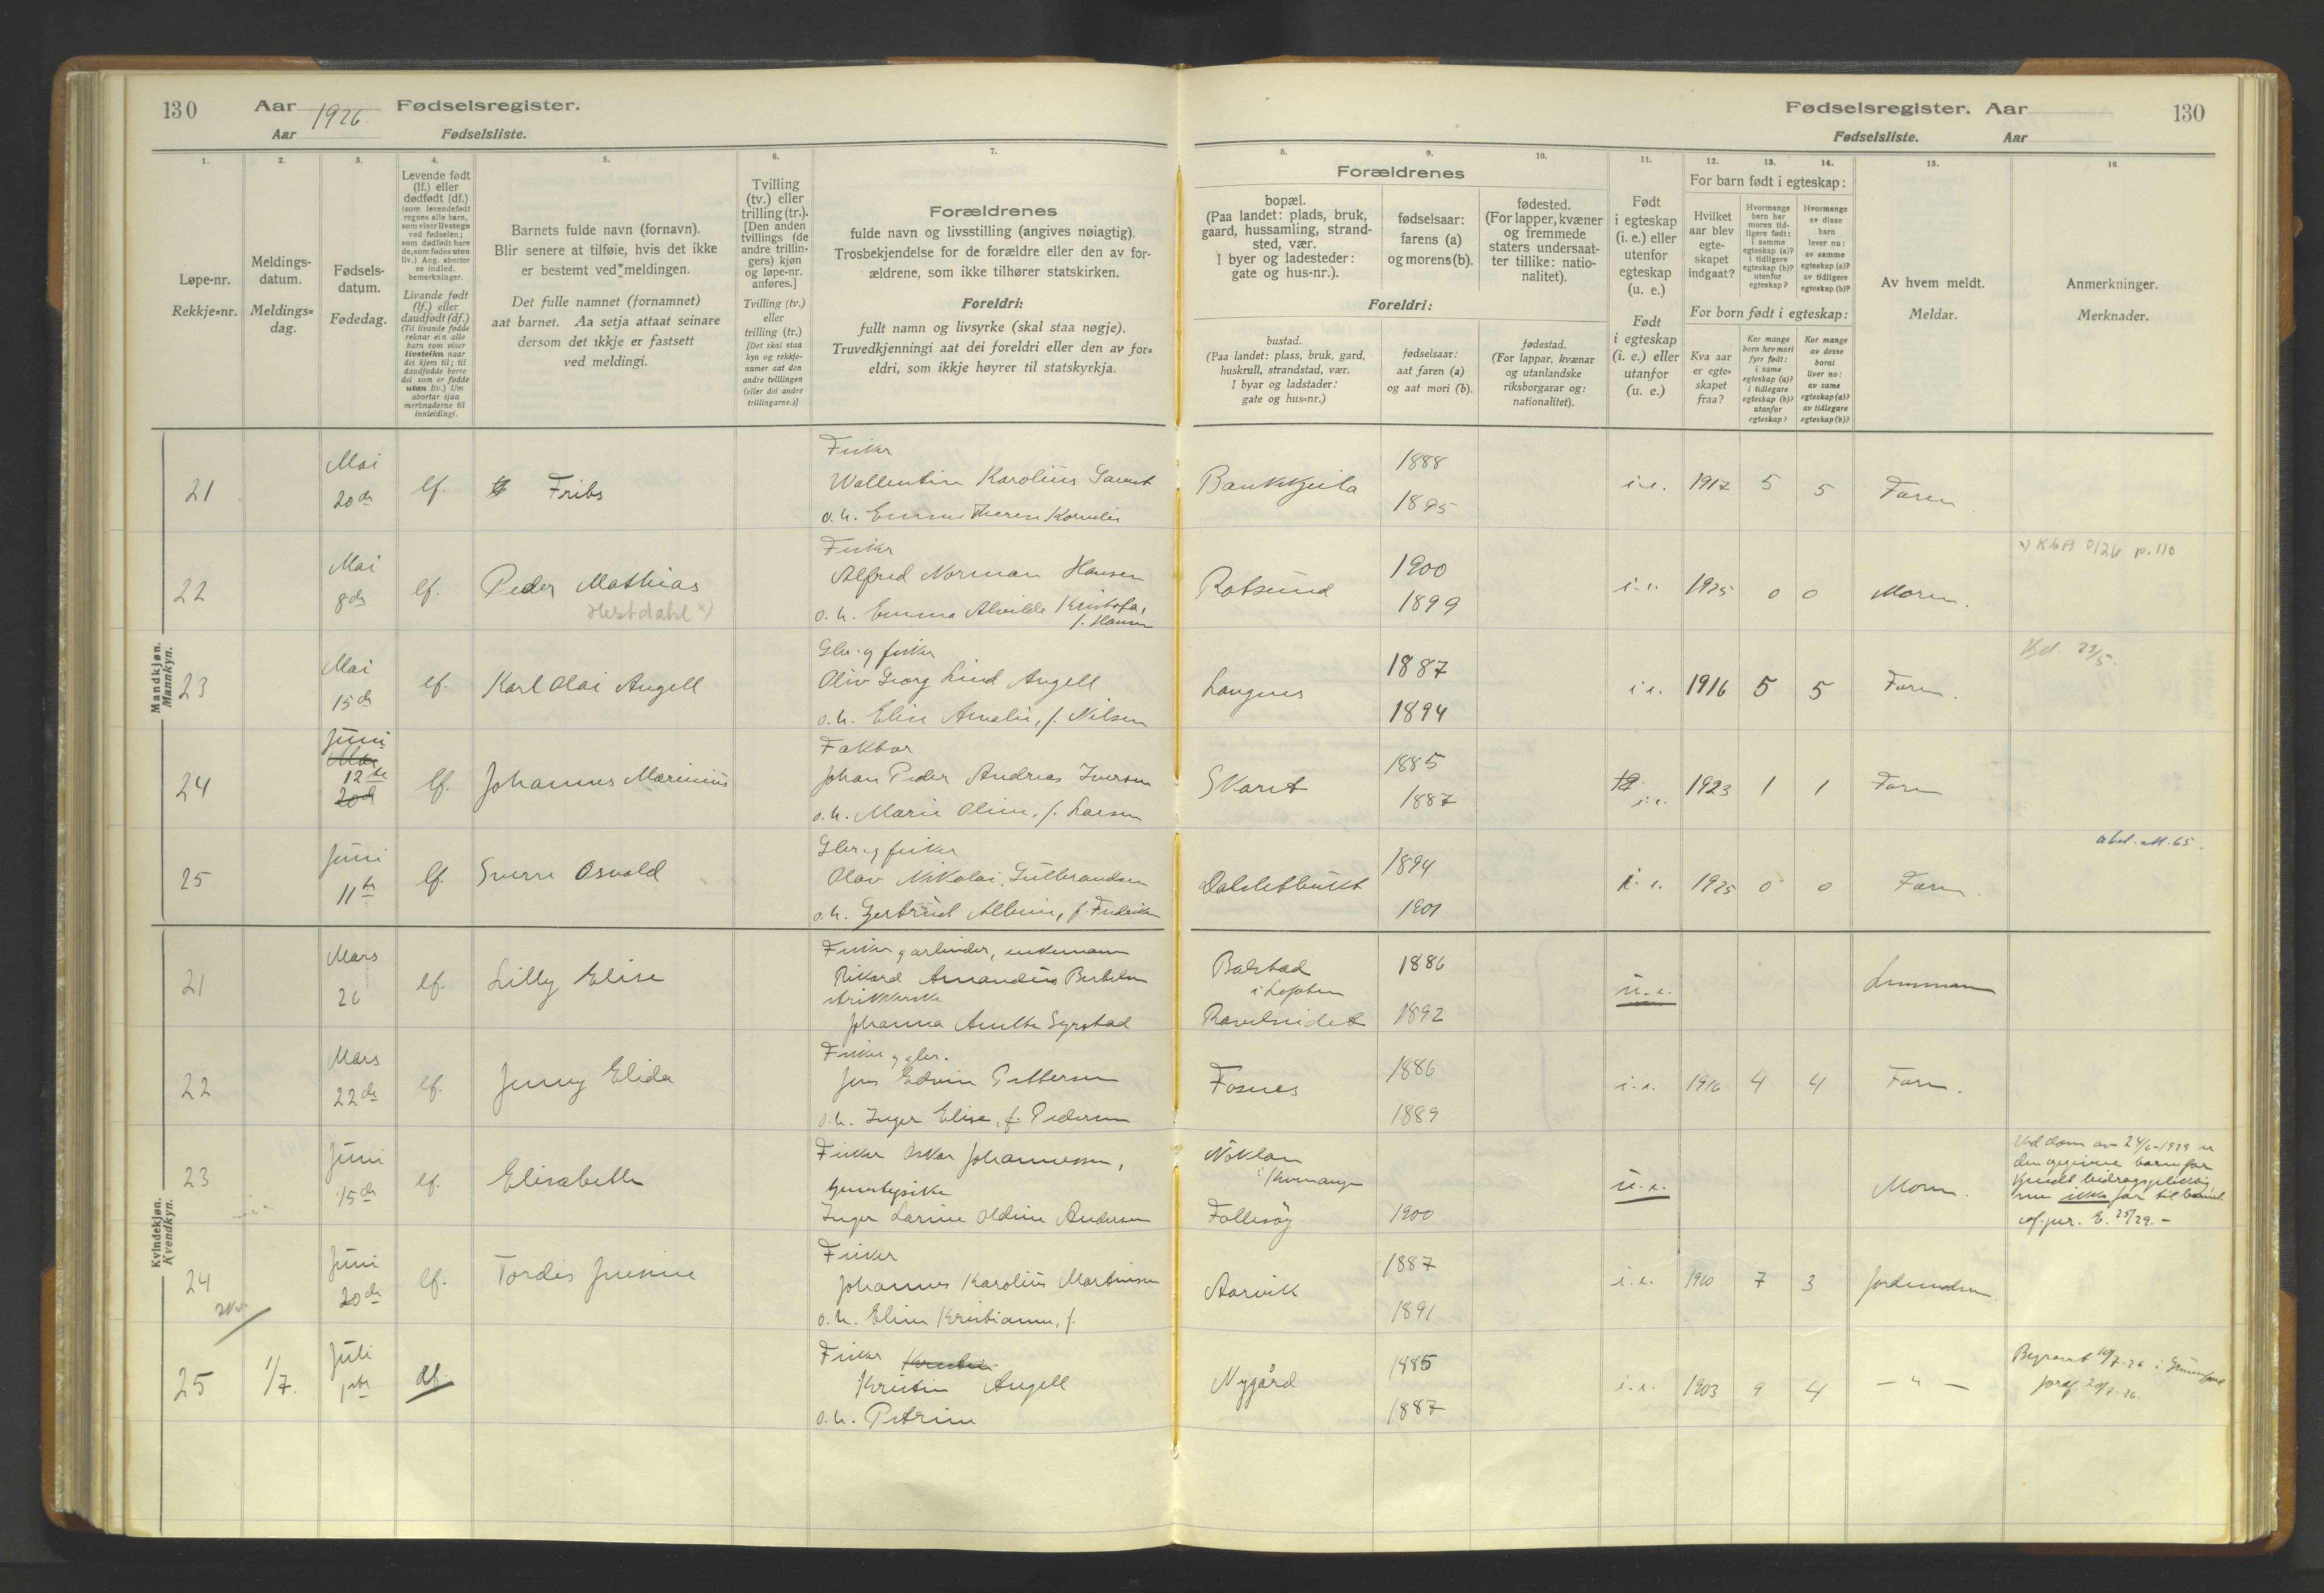 130 Aar 1926. Fødselsregister.
Aar Fødselsliste.
Fødselsregister. Aar 130
Fødselsliste. Aar
1. 2. 3. 4. 5. 6. 7.
Løpe-nr.
Rekkje=nr.
Meldings-
datum.
Meldings=
dag.
Fødsels-
datum.
Fødedag.
Levende født
(lf.) eller
dødfødt (df.)
(som levendefødt
regnes alle barn,
som viser livstegn
ved fødselen;
som dødfødt bare
de, som fødes uten
liv.) Ang. aborter
se indled.
bemerkninger.
Livande født
(lf.) eller
daudfødt (df.)
(Til livande fødde
reknar ein alle
barn som viser
livsteikn naar
dei kjem til; til
daudfødde berre
dei som er fødde
utan liv.) Um
abortar sjaa
merknaderne til
innleidingi.
Barnets fulde navn (fornavn).
Blir senere at tilføie, hvis det ikke
er bestemt ved meldingen.
Det fulle namnet (fornamnet)
aat barnet. Aa setja attaat seinare
dersom det ikkje er fastsett
ved meldingi.
Tvilling
(tv.) eller
trilling (tr.).
[Den anden
tvillings (de
andre trillin-
gers) kjøn
og løpe-nr.
anføres.]
Tvilling (tv.)
eller
trilling (tr.)
[Det skal staa
kyn og rekkje-
numer aat den
andre tvillingen
(eller dei andre
trillingarne.)]
Forældrenes
fulde navn og livsstilling (angives nøiagtig).
Trosbekjendelse for de forældre eller den av for-
ældrene, som ikke tilhører statskirken.
Foreldri:
fullt namn og livsyrke (skal staa nøgje).
Truvedkjenningi aat dei foreldri eller den av for=
eldri, som ikkje høyrer til statskyrkja.
8. 9. 10. 11. 12. 13. 14. 15. 16.
Forældrenes
bopæl.
(Paa landet: plads, bruk,
gaard, hussamling, strand-
sted, vær.
I byer og ladesteder:
gate og hus-nr.).
fødselsaar:
farens (a)
og morens (b).
fødested.
(For lapper, kvæner
og fremmede
staters undersaat-
ter tillike: natio-
nalitet).
Foreldri:
bustad.
(Paa landet: plass, bruk, gard,
huskrull, strandstad, vær.
I byar og ladstader:
gate og hus=nr.)
fødselsaar:
aat faren (a)
og aat mori (b).
fødestad.
(For lappar, kvænar
og utanlandske
riksborgarar og:
nationalitet).
Født
i egteskap
(i. e.) eller
utenfor
egteskap
(u. e.)
Født
i egteskap
(i. e.) eller
utanfor
(u. e.)
For barn født i egteskap:
Hvilket
aar blev
egte-
skapet
indgaat?
Hvormange
barn har
moren tid-
ligere født:
i samme
egteskap (a)?
i tidligere
egteskap (b)?
utenfor
egteskap?
Hvormange
av disse
barn
lever nu:
av samme
egteskap (a)?
av tidligere
egteskap (b)?
For born født i egteskap:
Kva aar
er egte=
skapet
fraa?
Kor mange
born hev mori
fyrr født:
i same
egteskap (a)?
i tidlegare
egteskap (b)?
utanfor
egteskap?
Kor mange
av desse
borni
liver no:
av same
egteskap (a)?
av tidlegare
egteskap (b)?
Av hvem meldt.
Meldar.
Anmerkninger.
Merknader.
Mandkjøn.
Mannkyn.
21 Mai 20de lf. Frits
Fisker
Wallentin Karolius
o. h. Emma Therese
1888
1895
i.e. 1917 5 5 Faren
22 Mai 8de lf. Peder Mathias
Hestdahl x)
Fisker
Alfred Norman Hansen
o. h. Emma Alvilde
f. Hansen
Rotsund 1900
1899
i.e. 1925 0 0 Moren.
23 Mai 15de lf. Karl Olai Angell
Gbr. og fisker
Oliv Georg Lind Angell
o. h. Elise Amalie, f. Nilsen
Langnes 1887
1894
i.e. 1916 5 5 Faren.
24 Juni
Mai
12te
20de
lf. Johannes Marinius
Faktor
Johan Peder Andreas Iversen
o. h. Marie Oline, f. Larsen
1885
1887
i.e. 1923 1 1 Faren
25 Juni 11te lf. Sverre Osvald
Gbr. og fisker
Olav Nikolai
o. h. Gertrud
1894
1901
i.e. 1925 0 0 Faren.
Kvindekjøn.
Kvendkyn.
21 Mars 26 lf. Lilly Elise
Fisker og arbeider, enkemann
Rikard Amandus
Johanna
Balstad
i Lofoten
1886
1892
u.e. Lensmann
22 Mars 22de lf. Jenny Elida
Fisker og gbr.
Jens Edvin Pettersen
o. h. Inger Elise, f. Pedersen
Fosnes 1886
1889
i.e. 1916 4 4 Faren.
23 Juni 15de lf. Elisabeth
Fisker Oskar Johannesen,
Inger Larine Oldine Andersen
1900
u.e. Moren.
24 Juni 20de lf. Tordis
Fisker
Johannes Karolius Martinsen
o. h. Eline Kristianne, f.
Aarvik 1887
1891
i.e. 1910 7 3
25 1/7. Juli 1ste df.
Fisker
Kristin Angell
o. h. Petrine
Nygård 1885
1887
i.e. 1903 9 4 — " —